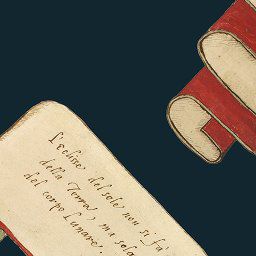 L'eclisse del sole non si fà
della Terra, ma solo
del corpo Lunare.